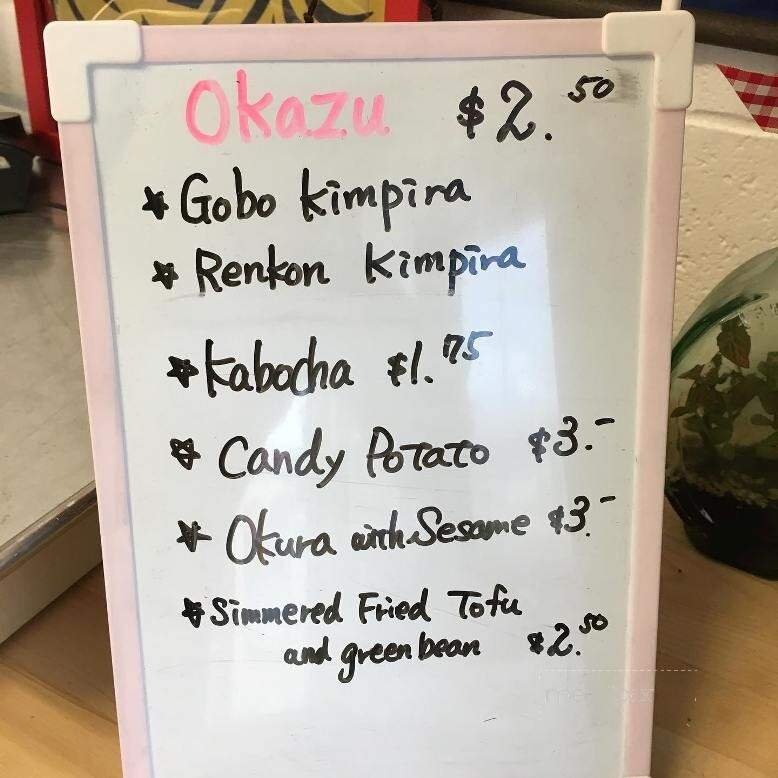 Okazu $2.50
* Gobo Kimpira
* Renkon Kimpira
* Kabocha $1.75
* Candy Potato $3.-
* Okura with Sesame $3.-
* Simmered Fried Tofu
and green bean $2.50